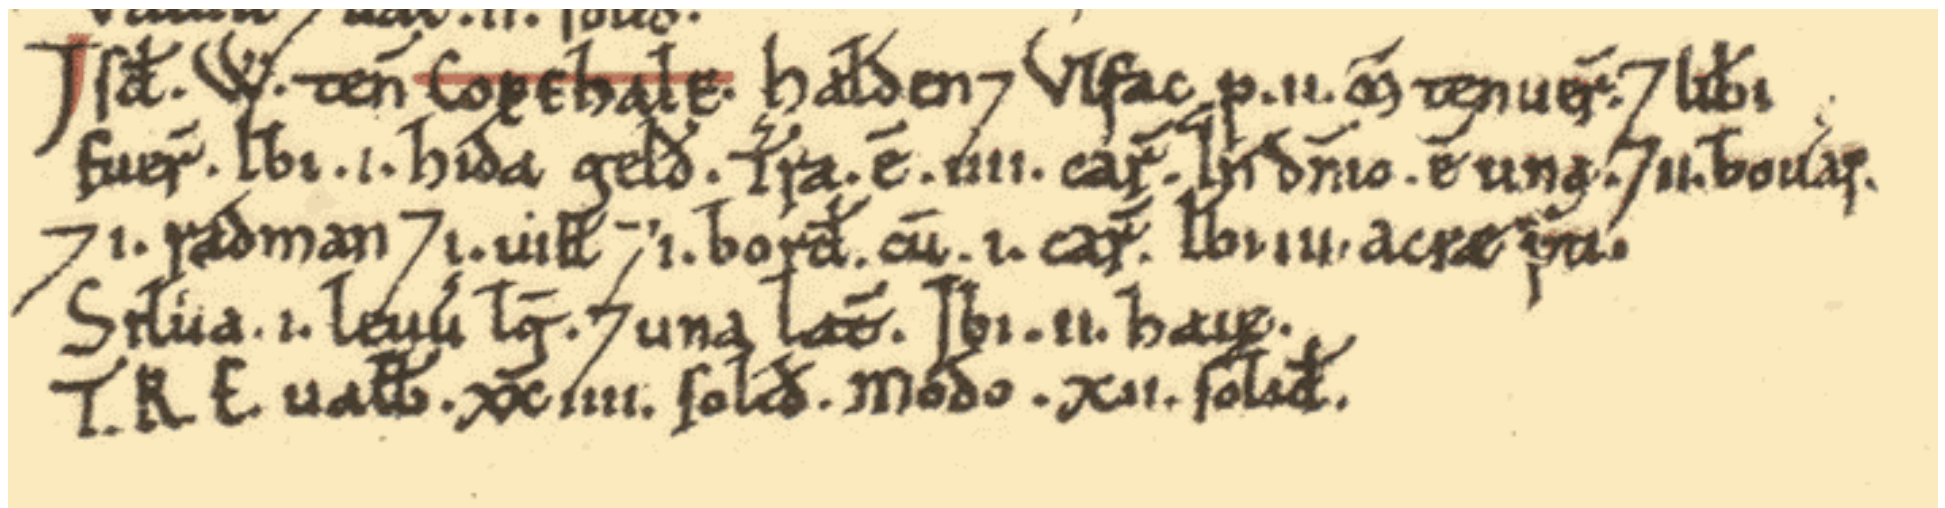 ualuit ⁊ ual̃ .ii. solid̃.
Isd̃. W. ten̄ Copehale. halden ⁊ Vlfac p .ii. m̃ tenuer̃. ⁊ lib̃i
fuer̃. Ibi .i. hida geld̃. Tr̃a. ē .iiii. car̃. In dn̄io. ē una. ⁊ ii. bouar̃.
⁊ i. radman ⁊ i. uill̃ ⁊ i. bord̃. cū .i. car̃. Ibi iii. acræ p̃ti.
Silua .i. leuũ lḡ. ⁊ una lat̃. Ibi .ii. haiæ.
T. R. E. ualb̃. xxiiii. solid̃. Modo .xii. solid̃.